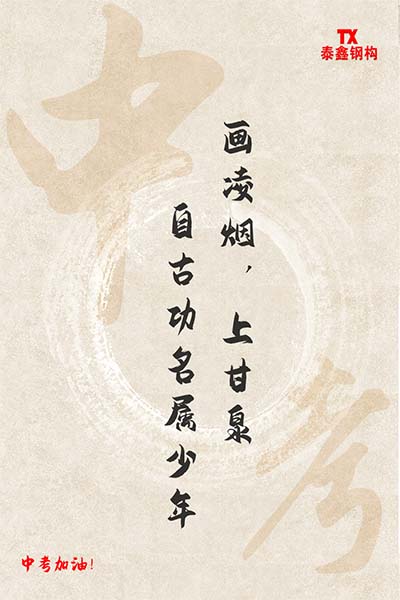 TX
泰鑫钢构
中考
画凌烟，上甘泉
自古功名属少年
中考加油！